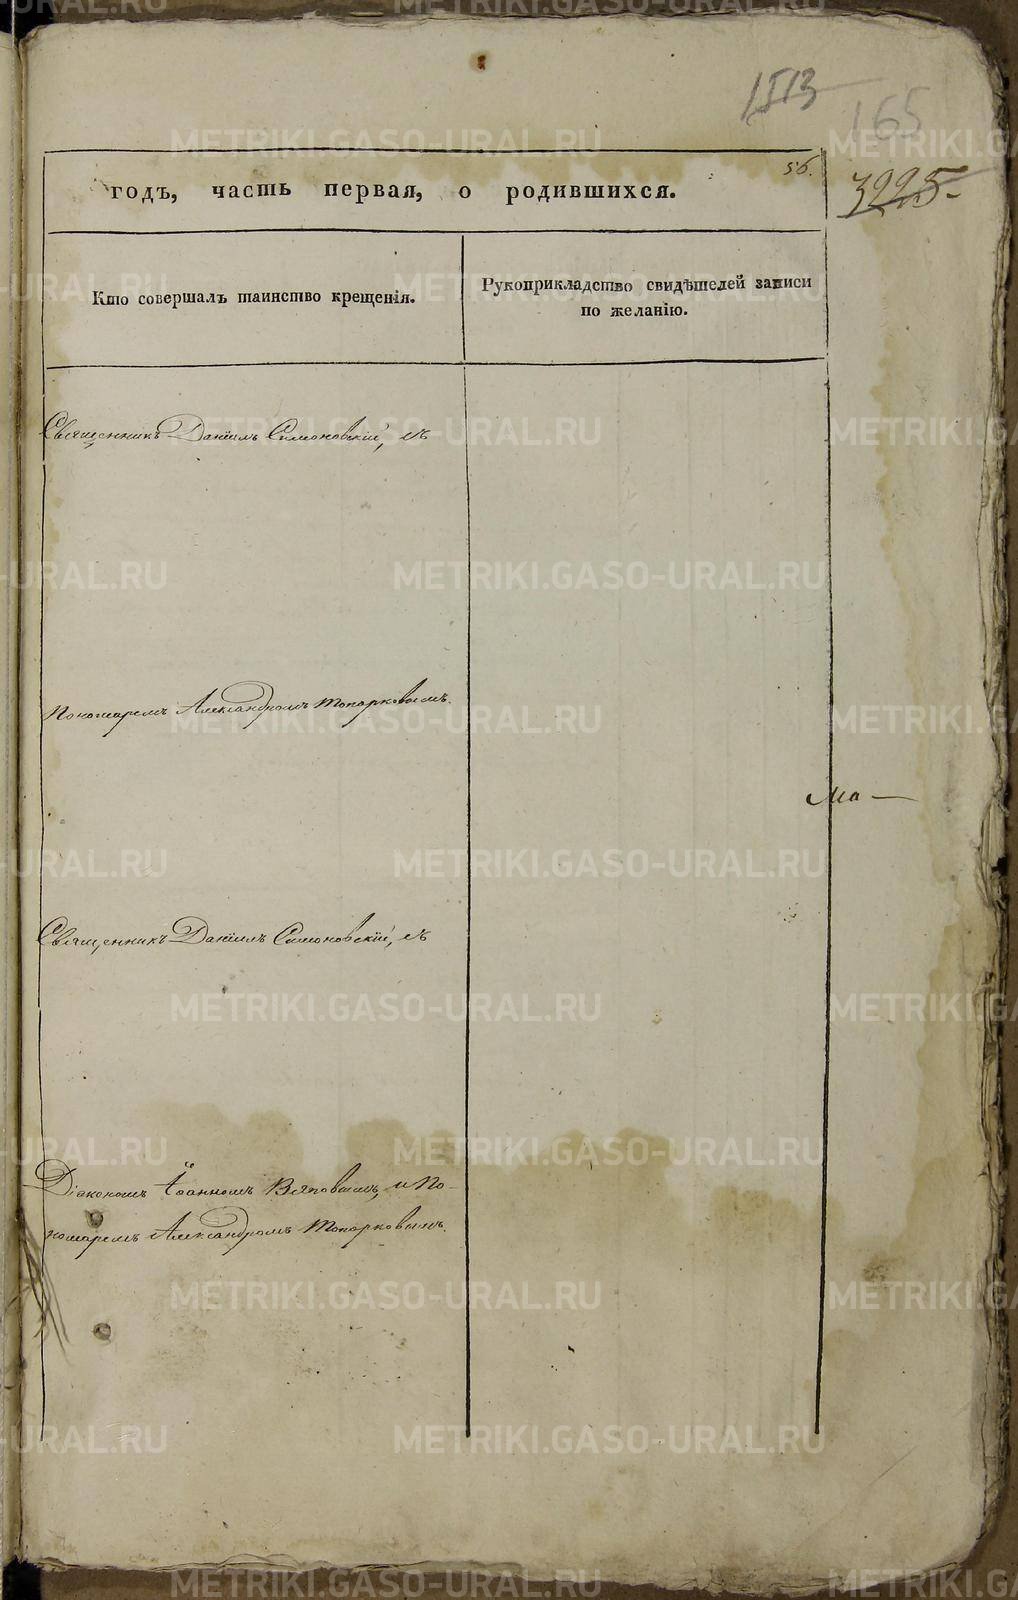 1513
165
56.
3225
годъ, часть первая, о родившихся.
Кто совершалъ таинство крещенія.
Рукоприкладство свидѣтелей записи
по желанію.
Священникъ Даніилъ Симоновскій, съ
Пономаремъ Александромъ Топорковымъ.
Ма—
Священникъ Даніилъ Симоновскій, съ
Діакономъ Іоанномъ Вяповымъ, и По-
номаремъ Александромъ Топорковымъ.
METRIKI.GASO-URAL.RU